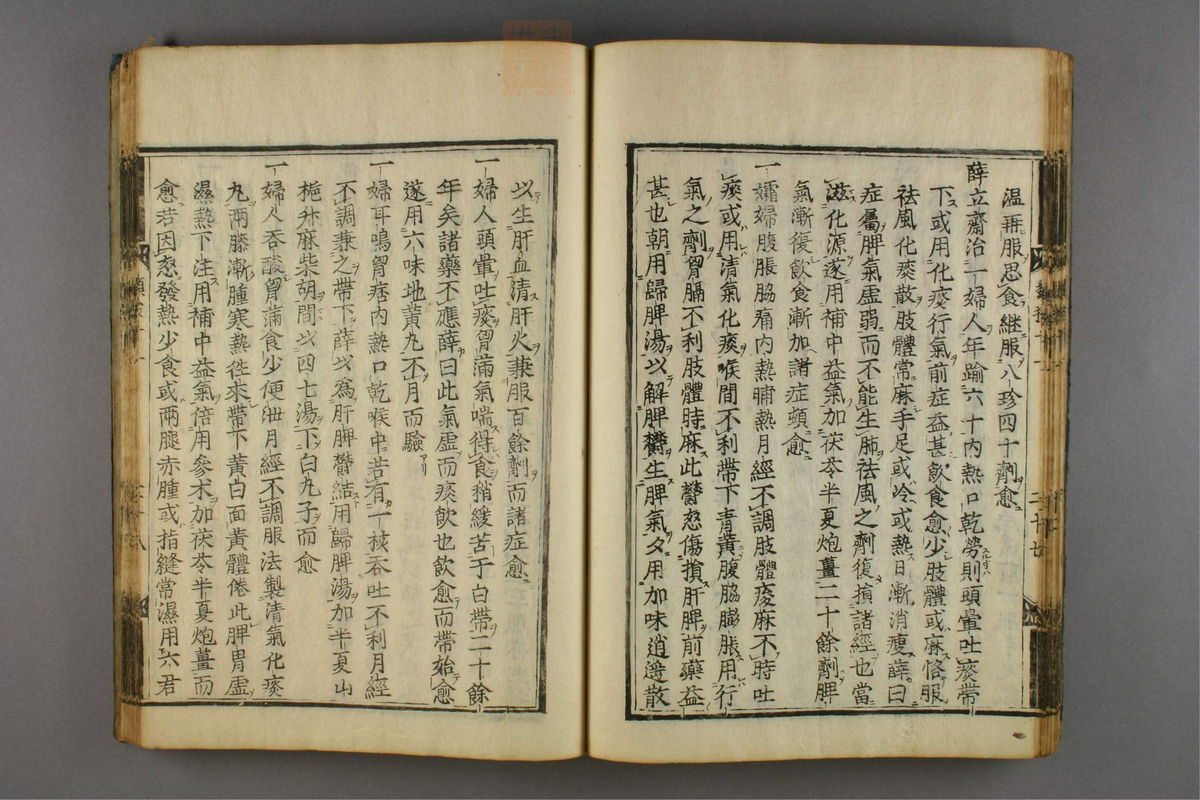 温再服思食継服八珍四十劑愈
薛立齋治一婦人年踰六十内熱口乾勞則頭暈吐痰帶
下或用化痰行氣前症益甚飲食愈少肢體或麻恪服
祛風化痰散肢體常麻手足或冷或熱日漸消瘦薛曰
症屬脾氣虚弱而不能生肺祛風之劑復損諸經也當
滋化源遂用補中益氣加茯苓半夏炮薑二十餘劑脾
氣漸復飲食漸加諸症頓愈
一孀婦腹脹脇痛内熱晡熱月經不調肢體痠麻不時吐
痰或用清氣化痰喉間不利帶下青黄腹脇膨脹用行
氣之劑胷膈不利肢體時麻此鬱怒傷損肝脾前藥益
甚也朝用歸脾湯以解脾鬱生脾氣夕用加味逍遥散
以生肝血清肝火兼服百餘劑而諸症愈
一婦人頭暈吐痰胷滿氣喘得食稍緩苦于白帶二十餘
年矣諸藥不應薛曰此氣虚而痰飲也飲愈而帶始愈
遂用六味地黄丸不月而驗
一婦耳鳴胷痞内熱口乾喉中若有一核吞吐不利月經
不調兼之帶下薛以為肝脾鬱結用歸脾湯加半夏山
梔升麻柴胡間以四七湯下白丸子而愈
一婦人吞酸胷滿食少便泄月經不調服法製清氣化痰
丸兩膝漸腫寒熱徃來帶下黄白面黄體倦此脾胃虚
濕熱下注用補中益氣倍用參术加茯苓半夏炮薑而
愈若因怒發熱少食或兩腿赤腫或指縫常濕用六君